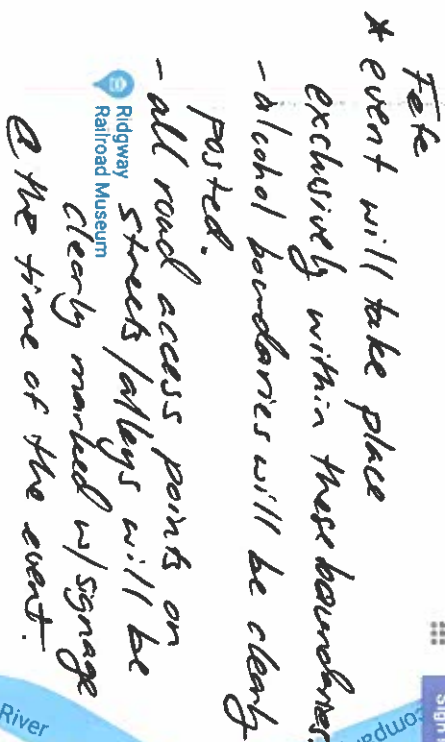 Fete
* event will take place
exclusively within these boundaries.
- alcohol boundaries will be clearly
posted.
- all road access points on
streets/alleys will be
clearly marked w/signage
@ the time of the event.
Ridgway
Railroad Museum
River
Sign